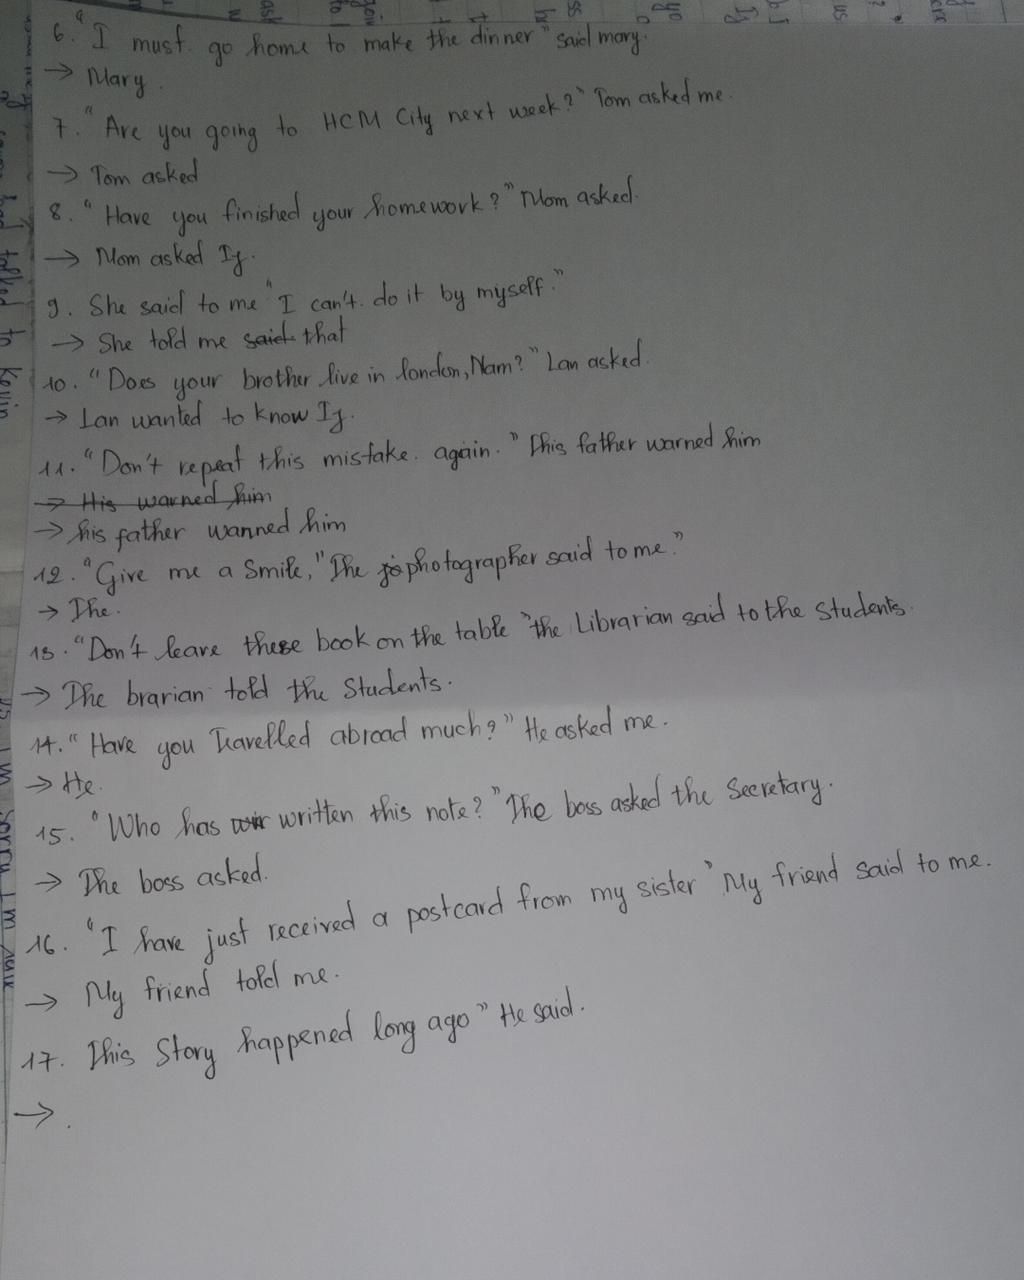 6. "I must go home to make the dinner" said mary.
→ Mary.
7. "Are you going to HCM City next week?" Tom asked me.
→ Tom asked
8. "Have you finished your homework?" Mom asked.
→ Mom asked If.
9. She said to me "I can't do it by myself."
→ She told me said that
10. "Does your brother live in london, Nam?" Lan asked.
→ Lan wanted to know If.
11. "Don't repeat this mistake. again." This father warned him
→ His warned him
→ his father wanned him
12. "Give me a Smile," The photographer said to me."
→ The.
13. "Don't leave these book on the table "the Librarian said to the Students.
→ The brarian told the Students.
14. "Have you Travelled abroad much?" He asked me.
→ He.
15. "Who has written this note?" The boss asked the Secretary.
→ The boss asked.
16. "I have just received a postcard from my sister" My friend said to me.
→ My friend told me.
17. This Story happened long ago" He said.
→ .